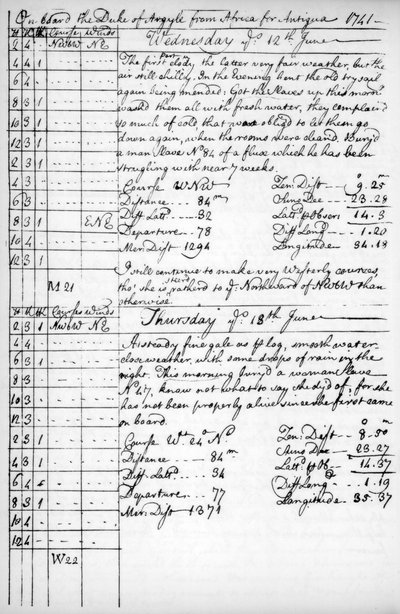 On board the Duke of Argyle from Africa for Antigua 1741—
H K HK Courses Winds
2 4 NWbW NE
4 4 1
6 4
8 3 1
10 4
12 3 1
2 3 1
4 3
6 3
8 3 1 ENE
10 4
12 3 1
M 21
Wednesday ye 12th June
The first cloudy, the latter very fair weather, but the
air still chilly. In the Evening bent the old try sail
again being mended: Got the Slaves up this morn.
washd them all with fresh water, they complain'd
so much of cold that was oblig'd to let them go
down again, when the rooms were clean'd. Bury'd
a man slave No 84 of a flux which he has been
strugling with near 7 weeks.
Course WNW
Distance 84m
Diff Latt. 32
Departure 78
Mer: Dist 1294
Zen: Dist 9.25
Suns Dec 23.28
Latt. pr Obser: 14.3
Diff Long 1.20
Longitude 34.18
I still continue to make very Westerly courses,
tho' she is steer'd rather to ye Northward of NWbW than
otherwise
H K HK Courses Winds
2 3 1 NWbW NE
4 4
6 3 1
8 3
10 3
12 3
2 3 1
4 3 1
6 4
8 3 1
10 4
12 4
W 22
Thursday ye 13th June
A steady fine gale as pr log, smooth water
close weather, with some drops of rain in the
night. This morning bury'd a woman slave
No 47, know not what to say she dy'd of, for she
has not been properly alive since she first came
on board.
Course Wt 24° No
Distance 84m
Diff: Latt. 34
Departure 77
Mer: Dist 1371
Zen: Dist 8.50
Suns Dec 23.27
Latt. pr Ob 14.37
Diff Long 1.19
Longitude 35.37